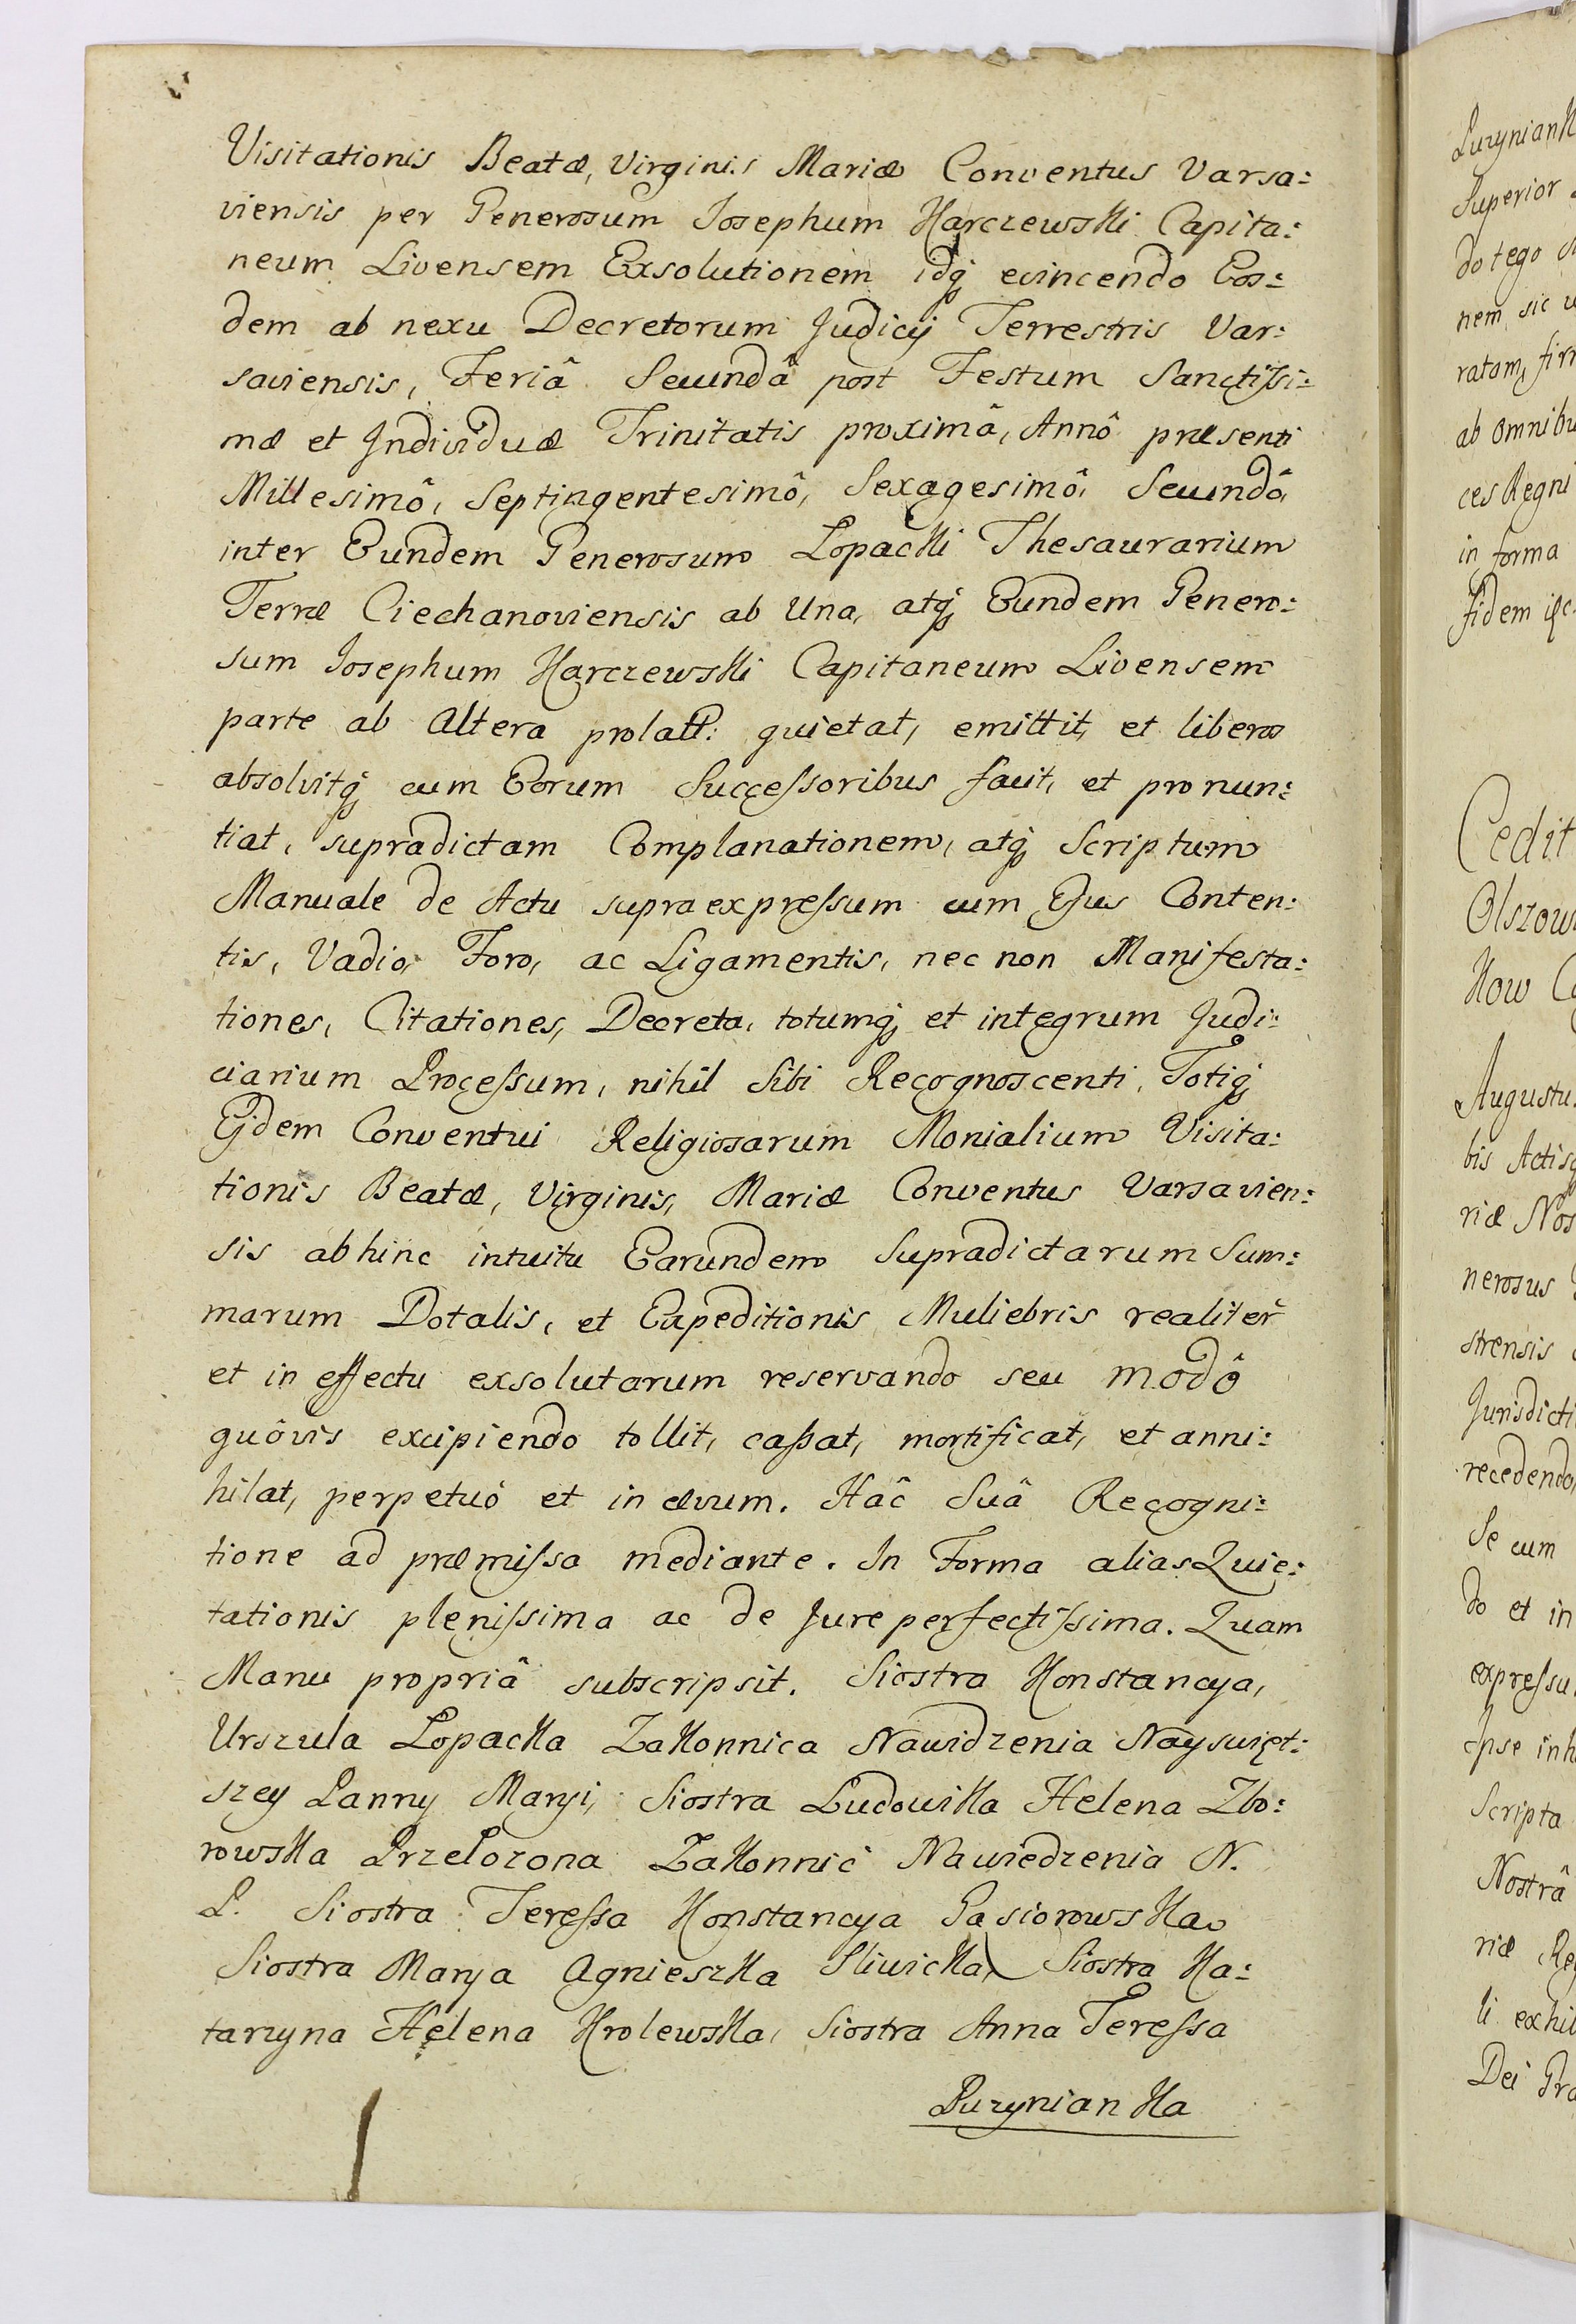 Visitationis Beatæ, Virginis Mariæ Conventus Varsa:
viensis per Generosum Josephum Karczewski Capita:
neum Livensem Exsolutionem idq evincendo Eos:
dem ab nexu Decretorum Judicij Terrestris Var:
saviensis, Feriâ Secundâ post Festum Sanctissi:
mæ et Individuæ Trinitatis proximâ, Annô præsenti
Millesimô, Septingentesimô, Sexagesimô, Secundô,
inter Eundem Generosum Lopacki Thesaurarium
Terræ Ciechanoviensis ab Una, atq Eundem Genero:
sum Josephum Karczewski Capitaneum Livensem
parte ab Altera prolatt: quietat, emittit, et liberos
absolvitq cum Eorum Successoribus facit, et pronun:
tiat, supradictam Complanationem, atq Scriptum
Manuale de Actu supraexpressum cum Ejus Conten:
tis, Vadio, Foro, ac Ligamentis, nec non Manifesta:
tiones, Citationes, Decreta, totumq et integrum Judi:
ciarium Processum, nihil Sibi Recognoscenti, Totiq
Ejdem Conventui Religiosarum Monialium Visita:
tionis Beatæ, Virginis, Mariæ Conventus Varsavien:
sis abhinc intuitu Earundem Supradictarum Sum:
marum Dotalis, et Expeditionis Muliebris realiter
et in effectu exsolutarum reservando seu modô
quôvis excipiendo tollit, cassat, mortificat, et anni:
hilat, perpetuó et in ævum. Hâc Suâ Recogni:
tione ad præmissa mediante. In Forma alias Quie:
tationis plenissima ac de Jure perfectissima. Quam
Manu propriâ subscripsit. Siostra Konstancya,
Urszula Lopacka Zakonnica Nawidzenia Nayswięt:
szey Panny Maryi, Siostra Ludowika Helena Zbo:
rowska Przelozona Zakonnic Nawiedzenia N.
P. Siostra Teressa Konstancya Gasiorowska
Siostra Marya Agnieszka Sliwicka, Siostra Ka:
tarzyna Helena Krolewska, Siostra Anna Teressa
Puzynianka
Puzyniank
Superior
do tego
nem, sic
ratam, fir
ab omnibu
ces Regni
in forma
fidem
Cedit
Olszow
kow
Augustu
bis Actisq
riæ Nos
nerosus
strensis
Jurisdicti
recedendo,
Se cum
do et in
expressu
Ipse inh
Scripta
Nostrâ
riæ Reg
li exhi
Dei Gra